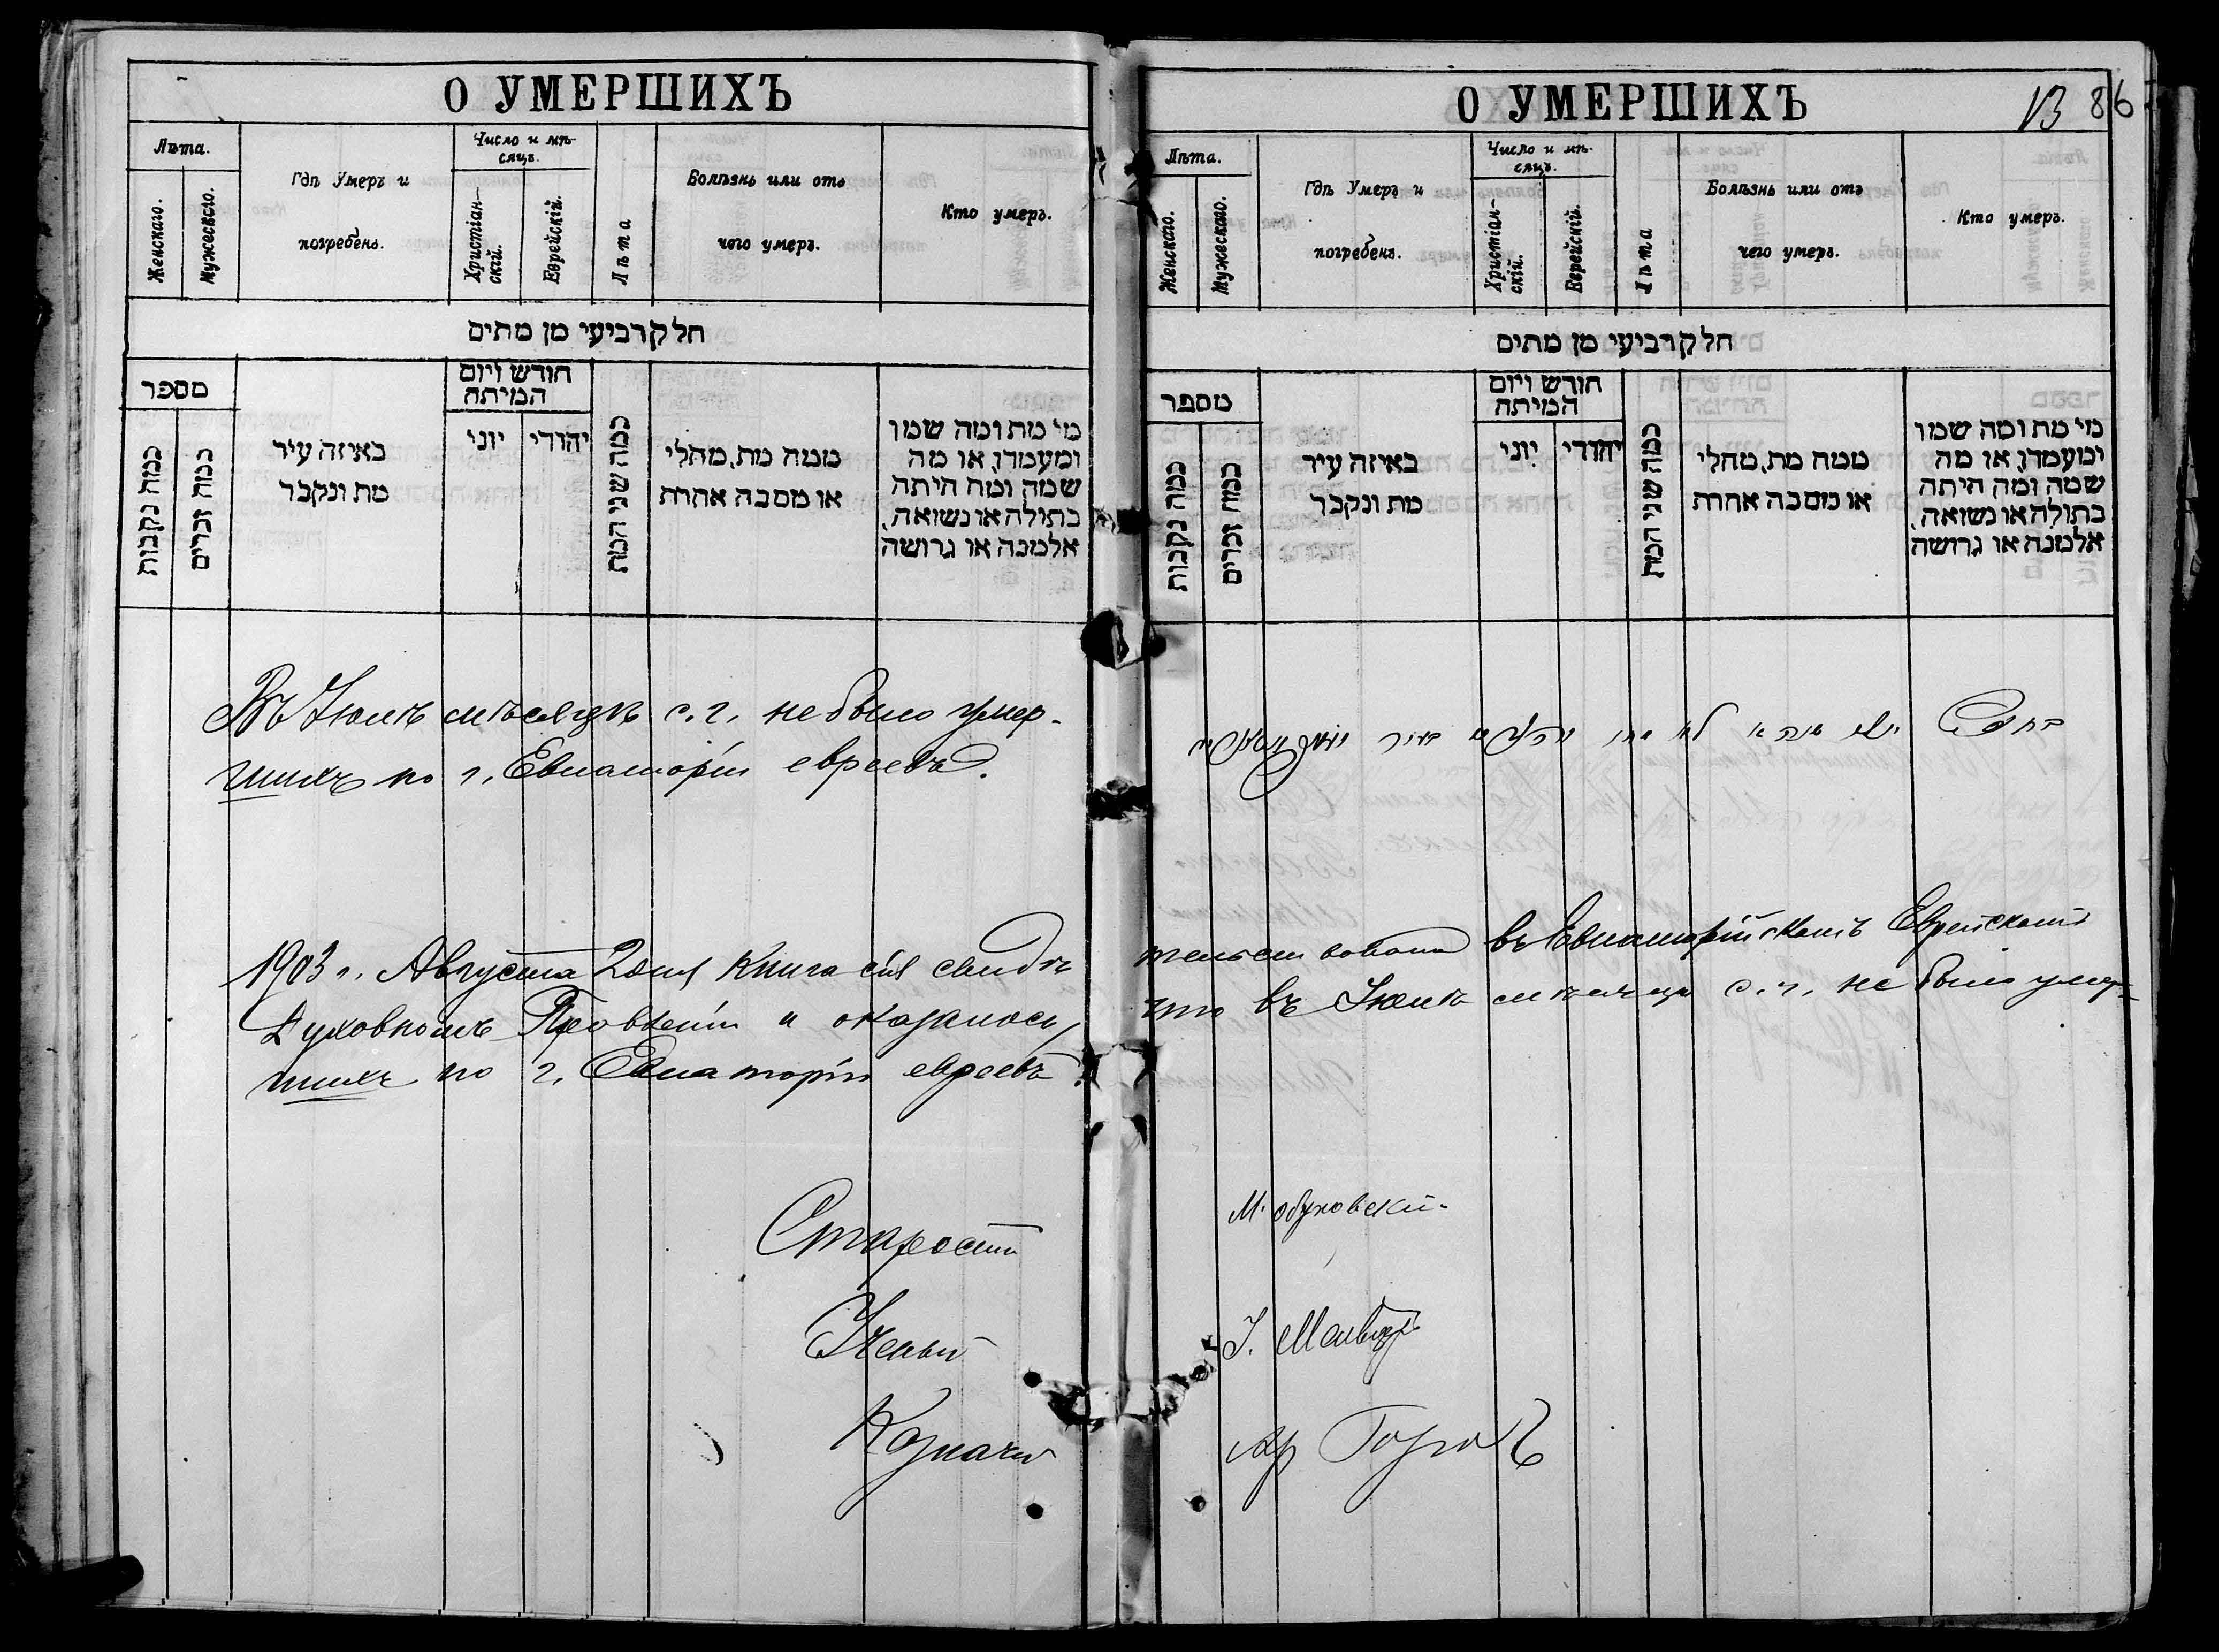 О УМЕРШИХЪ
Лѣта.
Женскаго.
Мужескаго.
Гдѣ Умеръ и
погребенъ.
Число и мѣ-
сяцъ.
Христіан-
скій.
Еврейскій.
Лѣта
Болѣзнь или отъ
чего умеръ.
Кто умеръ.
חלק רביעי מן מתים
מספר
כמה נקבות
כמה זכרים
באיזה עיר
מת ונקבר
חודש ויום
המיתה
יוני
יהודי
כמה שני המת
ממה מת, מחלי
או מסבה אחרת
מי מת ומה שמו
ומעמדו, או מה
שמה ומה היתה
בתולה או נשואה,
אלמנה או גרושה
Въ Іюлѣ мѣсяцѣ с. г. не было умер-
шихъ по г. Евпаторіи евреевъ.
1903 г. Августа 2 дня Книга сія свидѣ
Духовномъ Правленіи и оказалось,
шихъ по г. Евпаторіи евреевъ.
Староста
Ученый
Казначей
О УМЕРШИХЪ
13 86
Лѣта.
Женскаго.
Мужескаго.
Гдѣ Умеръ и
погребенъ.
Число и мѣ-
сяцъ.
Христіан-
скій.
Еврейскій.
Лѣта
Болѣзнь или отъ
чего умеръ.
Кто умеръ.
חלק רביעי מן מתים
מספר
כמה נקבות
כמה זכרים
באיזה עיר
מת ונקבר
חודש ויום
המיתה
יוני
יהודי
כמה שני המת
ממה מת, מחלי
או מסבה אחרת
מי מת ומה שמו
ומעמדו, או מה
שמה ומה היתה
בתולה או נשואה,
אלמנה או גרושה
тельствована въ Евпаторійскомъ Еврейскомъ
что въ Іюлѣ мѣсяцѣ с. г. не было умер-
М. Обуховскій.
І.